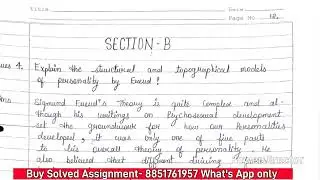 Title
Date
Page No 12.
SECTION-B
ues 4.
Explain the structural and topographical models
of personality by Freud?
ns
Sigmund Freud's Theory is quite complex and al-
though his writings on Psychosexual development
set the groundwork for how our personalities
developed, it was only one of five parts
to his overall theory of personality. He
also believed that different driving
Buy Solved Assignment- 8851761957 What's App only